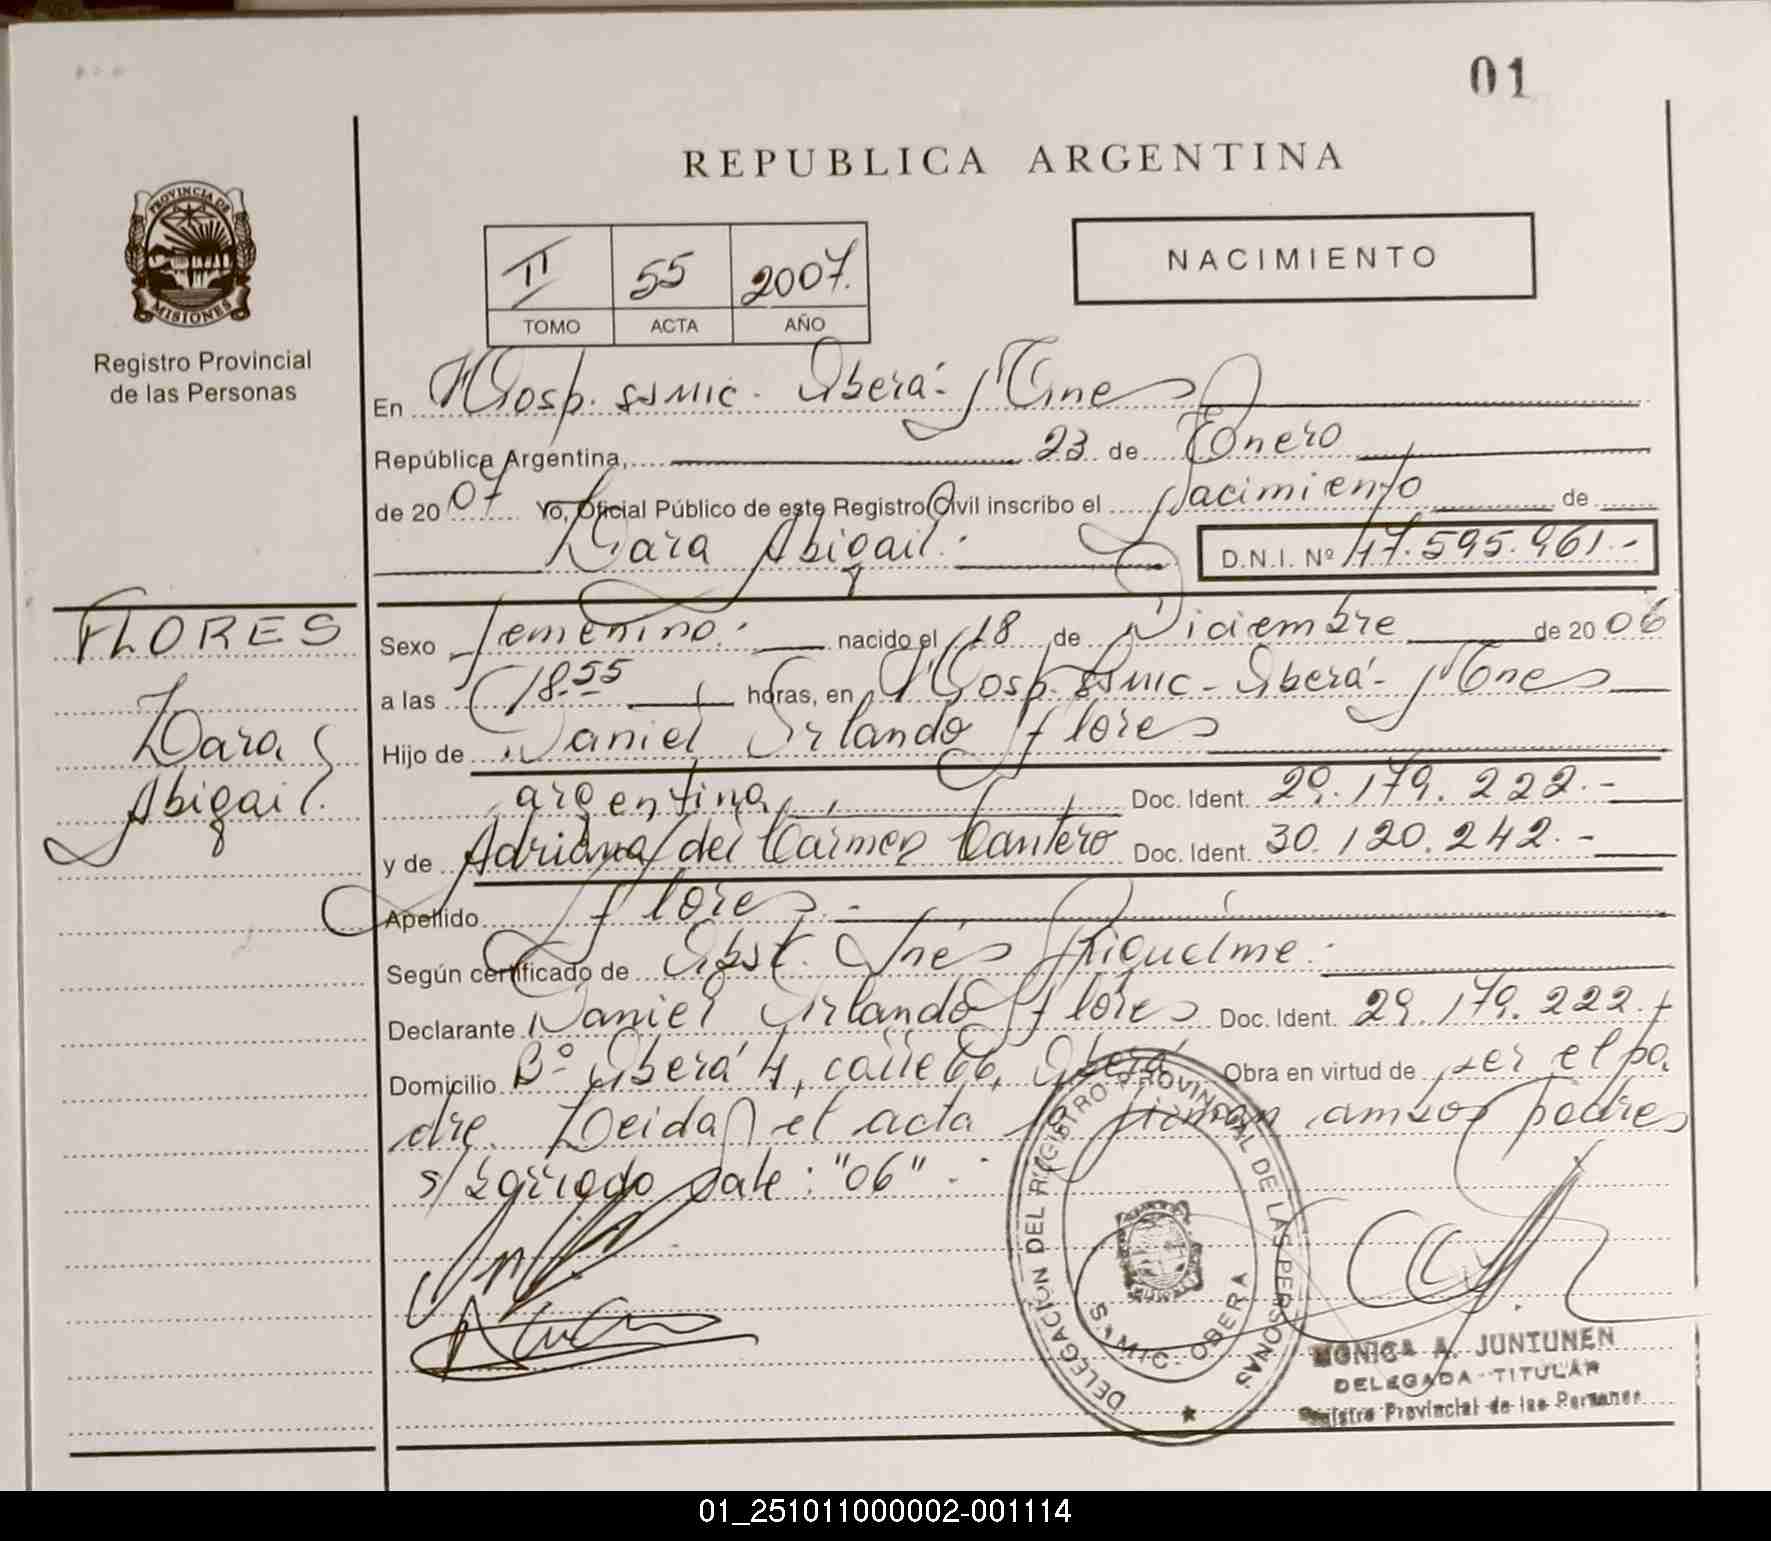 01
REPUBLICA ARGENTINA
PROVINCIA DE
MISIONES
Registro Provincial
de las Personas
II 55 2007.
TOMO ACTA AÑO
NACIMIENTO
En Hosp. SSMIC - Oberá - Mnes
República Argentina, 23 de Enero
de 2007 Yo, Oficial Público de este Registro Civil inscribo el Nacimiento de
Lara Abigail.- D.N.I. Nº 47.595.961.-
FLORES
Lara
Abigail.
Sexo femenino.- nacido el 18 de Diciembre de 2006
a las 18.55 horas, en Hosp. SSMIC - Oberá - Mnes
Hijo de Daniel Orlando Flores
argentina Doc. Ident. 29.179.222.-
y de Adriana del Carmen Cantero Doc. Ident. 30.120.242.-
Apellido Flores.-
Según certificado de Obst. Inés Riquelme.-
Declarante Daniel Orlando Flores Doc. Ident. 29.179.222.-
Domicilio Bº Oberá 4, calle 66, Oberá Obra en virtud de ser el pa
dre. Leida el acta la firman ambos padres
s/ Vale: "06".-
DELEGACION DEL REGISTRO PROVINCIAL DE LAS PERSONAS
S.MIC. OBERA
MONICA A. JUNTUNEN
DELEGADA TITULAR
Registro Provincial de las Personas
01_251011000002-001114